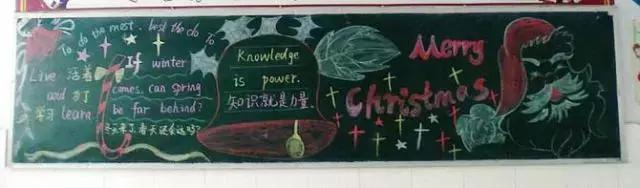 To do the most. best the do To
Live 活着
and 为了
学习 learn
If winter
comes, can spring
be far behind?
冬天来了,春天还会远吗?
Knowledge
is power.
知识就是力量.
Merry
Christmas